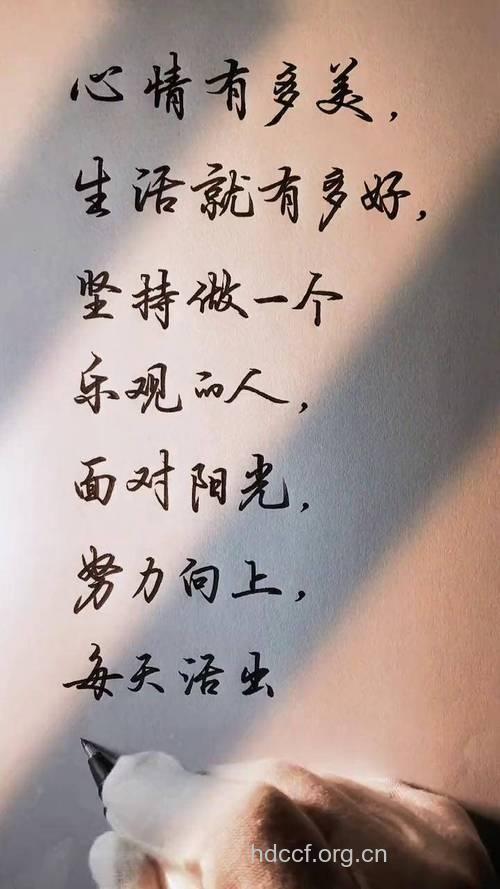 心情有多美，
生活就有多好，
坚持做一个
乐观的人，
面对阳光，
努力向上，
每天活出
hdccf.org.cn